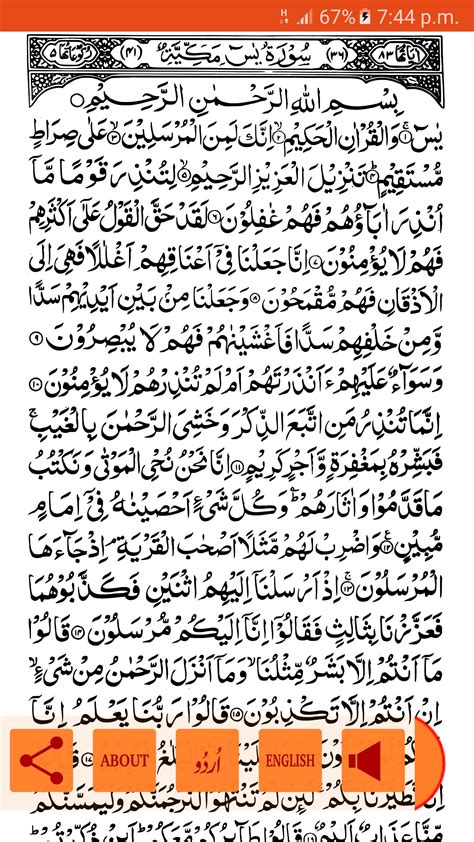 67% 7:44 p.m.
اٰيَاتُهَا ٨٣ (٣٦) سُوْرَةُ يٰسٓ مَكِّيَّةٌ (٤١) رُكُوْعَاتُهَا ٥
بِسْمِ اللّٰهِ الرَّحْمٰنِ الرَّحِيْمِ
يٰسٓ ۝١ وَالْقُرْاٰنِ الْحَكِيْمِ ۝٢ اِنَّكَ لَمِنَ الْمُرْسَلِيْنَ ۝٣ عَلٰى صِرَاطٍ
مُّسْتَقِيْمٍ ۝٤ تَنْزِيْلَ الْعَزِيْزِ الرَّحِيْمِ ۝٥ لِتُنْذِرَ قَوْمًا مَّاۤ
اُنْذِرَ اٰبَآؤُهُمْ فَهُمْ غٰفِلُوْنَ ۝٦ لَقَدْ حَقَّ الْقَوْلُ عَلٰۤى اَكْثَرِهِمْ
فَهُمْ لَا يُؤْمِنُوْنَ ۝٧ اِنَّا جَعَلْنَا فِيْۤ اَعْنَاقِهِمْ اَغْلٰلًا فَهِيَ اِلَى
الْاَذْقَانِ فَهُمْ مُّقْمَحُوْنَ ۝٨ وَجَعَلْنَا مِنْۢ بَيْنِ اَيْدِيْهِمْ سَدًّا
وَّمِنْ خَلْفِهِمْ سَدًّا فَاَغْشَيْنٰهُمْ فَهُمْ لَا يُبْصِرُوْنَ ۝٩
وَسَوَآءٌ عَلَيْهِمْ ءَاَنْذَرْتَهُمْ اَمْ لَمْ تُنْذِرْهُمْ لَا يُؤْمِنُوْنَ ۝١٠
اِنَّمَا تُنْذِرُ مَنِ اتَّبَعَ الذِّكْرَ وَخَشِيَ الرَّحْمٰنَ بِالْغَيْبِ ۚ
فَبَشِّرْهُ بِمَغْفِرَةٍ وَّاَجْرٍ كَرِيْمٍ ۝١١ اِنَّا نَحْنُ نُحْيِ الْمَوْتٰى وَنَكْتُبُ
مَا قَدَّمُوْا وَاٰثَارَهُمْ ؕ وَكُلَّ شَيْءٍ اَحْصَيْنٰهُ فِيْۤ اِمَامٍ
مُّبِيْنٍ ۝١٢ وَاضْرِبْ لَهُمْ مَّثَلًا اَصْحٰبَ الْقَرْيَةِ ۘ اِذْ جَآءَهَا
الْمُرْسَلُوْنَ ۝١٣ اِذْ اَرْسَلْنَاۤ اِلَيْهِمُ اثْنَيْنِ فَكَذَّبُوْهُمَا
فَعَزَّزْنَا بِثَالِثٍ فَقَالُوْۤا اِنَّاۤ اِلَيْكُمْ مُّرْسَلُوْنَ ۝١٤ قَالُوْا
مَاۤ اَنْتُمْ اِلَّا بَشَرٌ مِّثْلُنَا ۙ وَمَاۤ اَنْزَلَ الرَّحْمٰنُ مِنْ شَيْءٍ ۙ
اِنْ اَنْتُمْ اِلَّا تَكْذِبُوْنَ ۝١٥ قَالُوْا رَبُّنَا يَعْلَمُ اِنَّاۤ
ABOUT اُردُو ENGLISH
تَطَيَّرْنَا بِكُمْ ۚ لَئِنْ لَّمْ تَنْتَهُوْا لَنَرْجُمَنَّكُمْ وَلَيَمَسَّنَّكُمْ
مِّنَّا عَذَابٌ اَلِيْمٌ ۝١٨ قَالُوْا طَآئِرُكُمْ مَّعَكُمْ ؕ اَئِنْ ذُكِّرْتُمْ ؕ